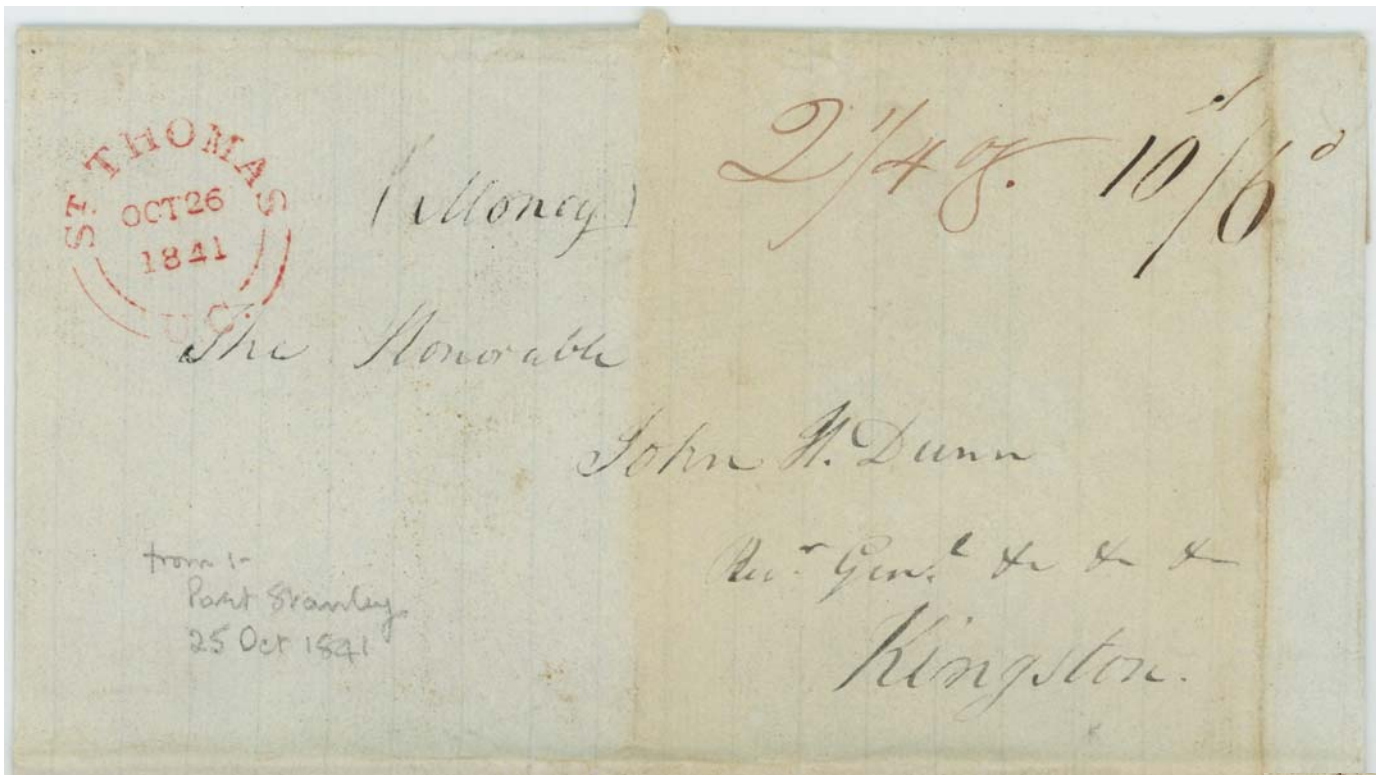 ST THOMAS
OCT 26
1841
U.C.
(Money)
2 1/4 oz. 10/6d
The Honorable
John H. Dunn
Recr Genl &c &c &c
Kingston.
from
Port Stanley
25 Oct 1841